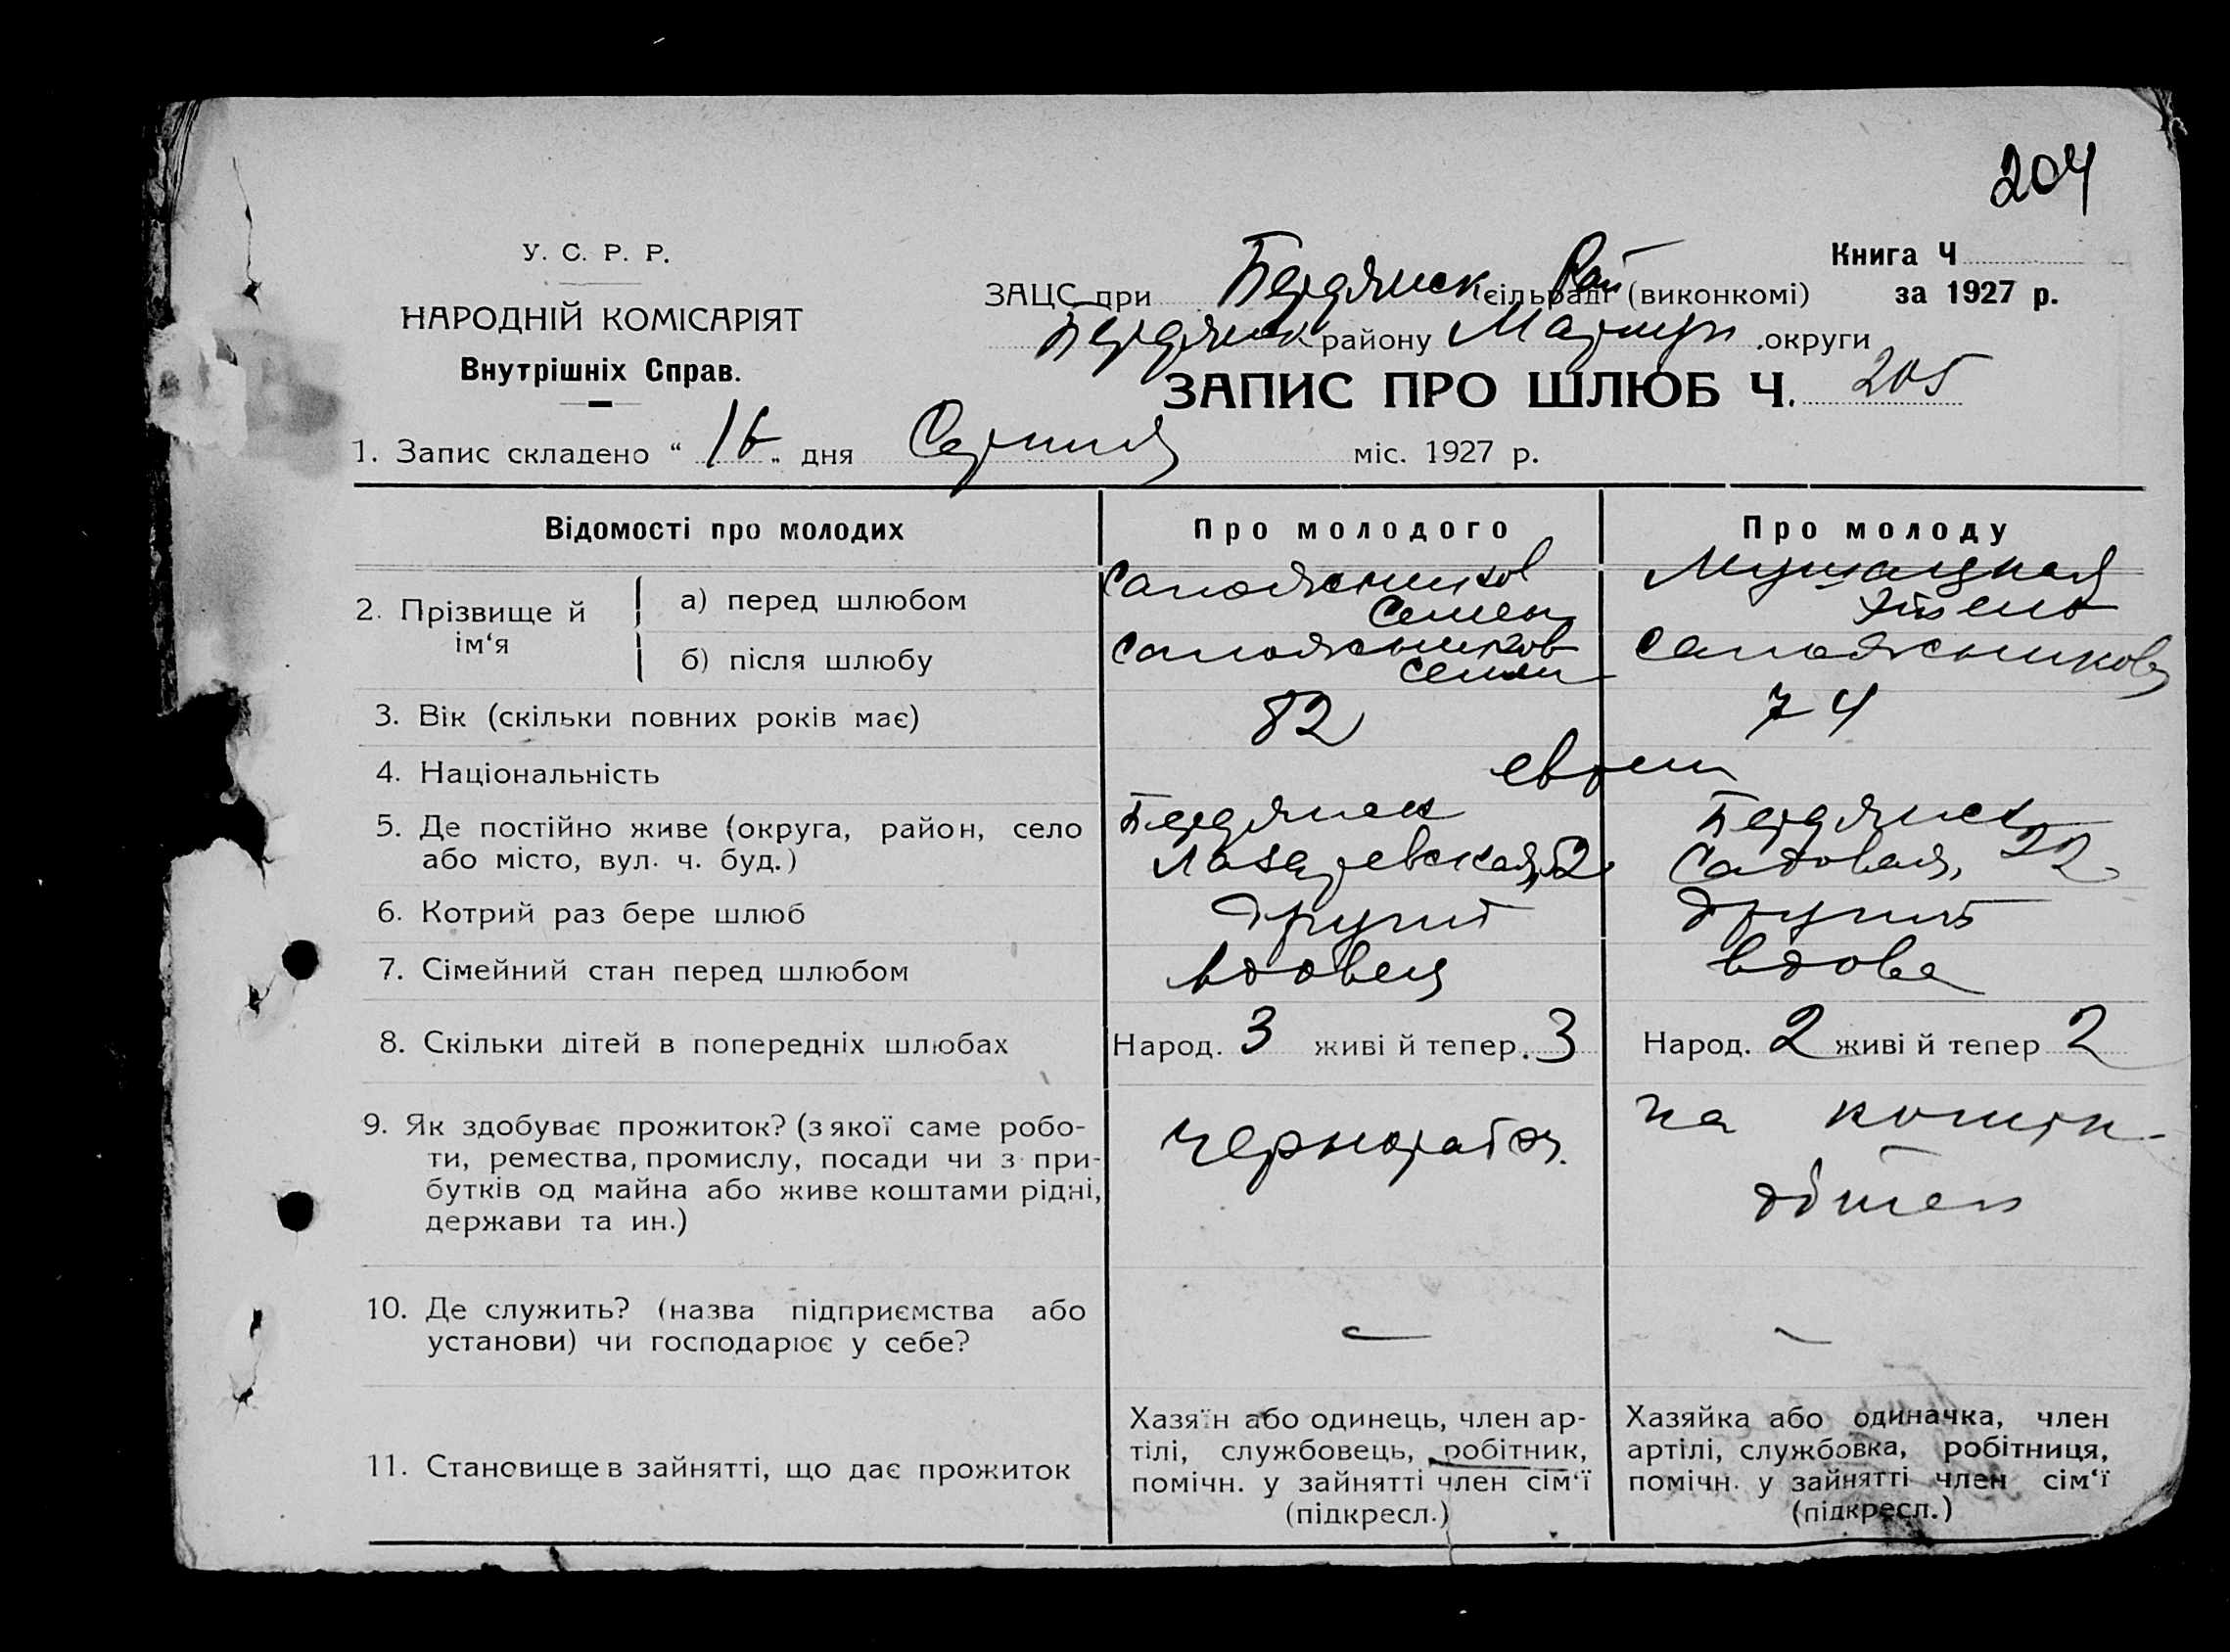 204
У. С. Р. Р.
НАРОДНІЙ КОМІСАРІЯТ
Внутрішніх Справ.
Книга Ч
за 1927 р.
ЗАЦС при Бердянск сільраді Рай (виконкомі)
Бердянск району Мариуп. округи
ЗАПИС ПРО ШЛЮБ Ч. 205
1. Запис складено “ 16 „ дня Серпня міс. 1927 р.
Відомості про молодих
Про молодого
Про молоду
2. Прізвище й ім‘я
а) перед шлюбом
Сапожников
Семен
б) після шлюбу
Сапожников
Семен
Сапожникова
3. Вік (скільки повних років має)
82
74
4. Національність
евреи
5. Де постійно живе (округа, район, село
або місто, вул. ч. буд.)
Бердянск
Лазаревская, 52
Бердянск
Садовая, 22
6. Котрий раз бере шлюб
другий
другий
7. Сімейний стан перед шлюбом
вдовец
вдова
8. Скільки дітей в попередніх шлюбах
Народ. 3 живі й тепер. 3
Народ. 2 живі й тепер 2
9. Як здобуває прожиток? (з якої саме робо-
ти, ремества, промислу, посади чи з при-
бутків од майна або живе коштами рідні,
держави та ин.)
чернораб.
на
дітей
10. Де служить? (назва підприємства або
установи) чи господарює у себе?
—
—
11. Становище в зайнятті, що дає прожиток
Хазяїн або одинець, член ар-
тілі, службовець, робітник,
помічн. у зайнятті член сім‘ї
(підкресл.)
Хазяйка або одиначка, член
артілі, службовка, робітниця,
помічн. у зайнятті член сім‘ї
(підкресл.)